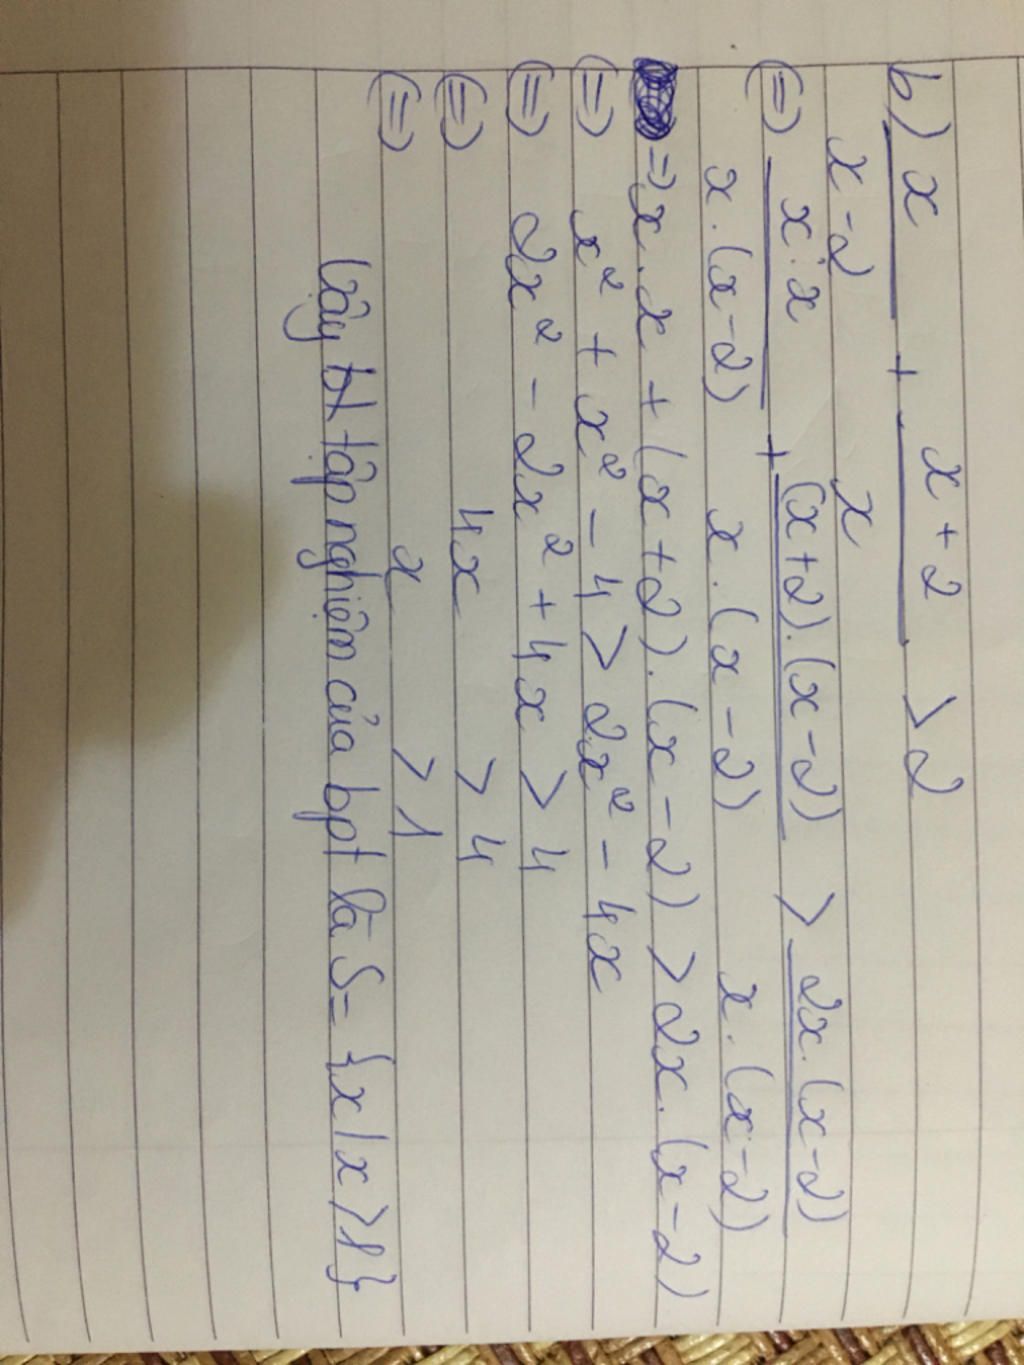 b) x/(x-2) + (x+2)/x > 2
(=) x.x/x.(x-2) + (x+2).(x-2)/x.(x-2) > 2x.(x-2)/x.(x-2)
=> x.x + (x+2).(x-2) > 2x.(x-2)
(=) x² + x² - 4 > 2x² - 4x
(=) 2x² - 2x² + 4x > 4
(=) 4x > 4
(=) x > 1
Vậy tập nghiệm của bpt là S = {x / x > 1}